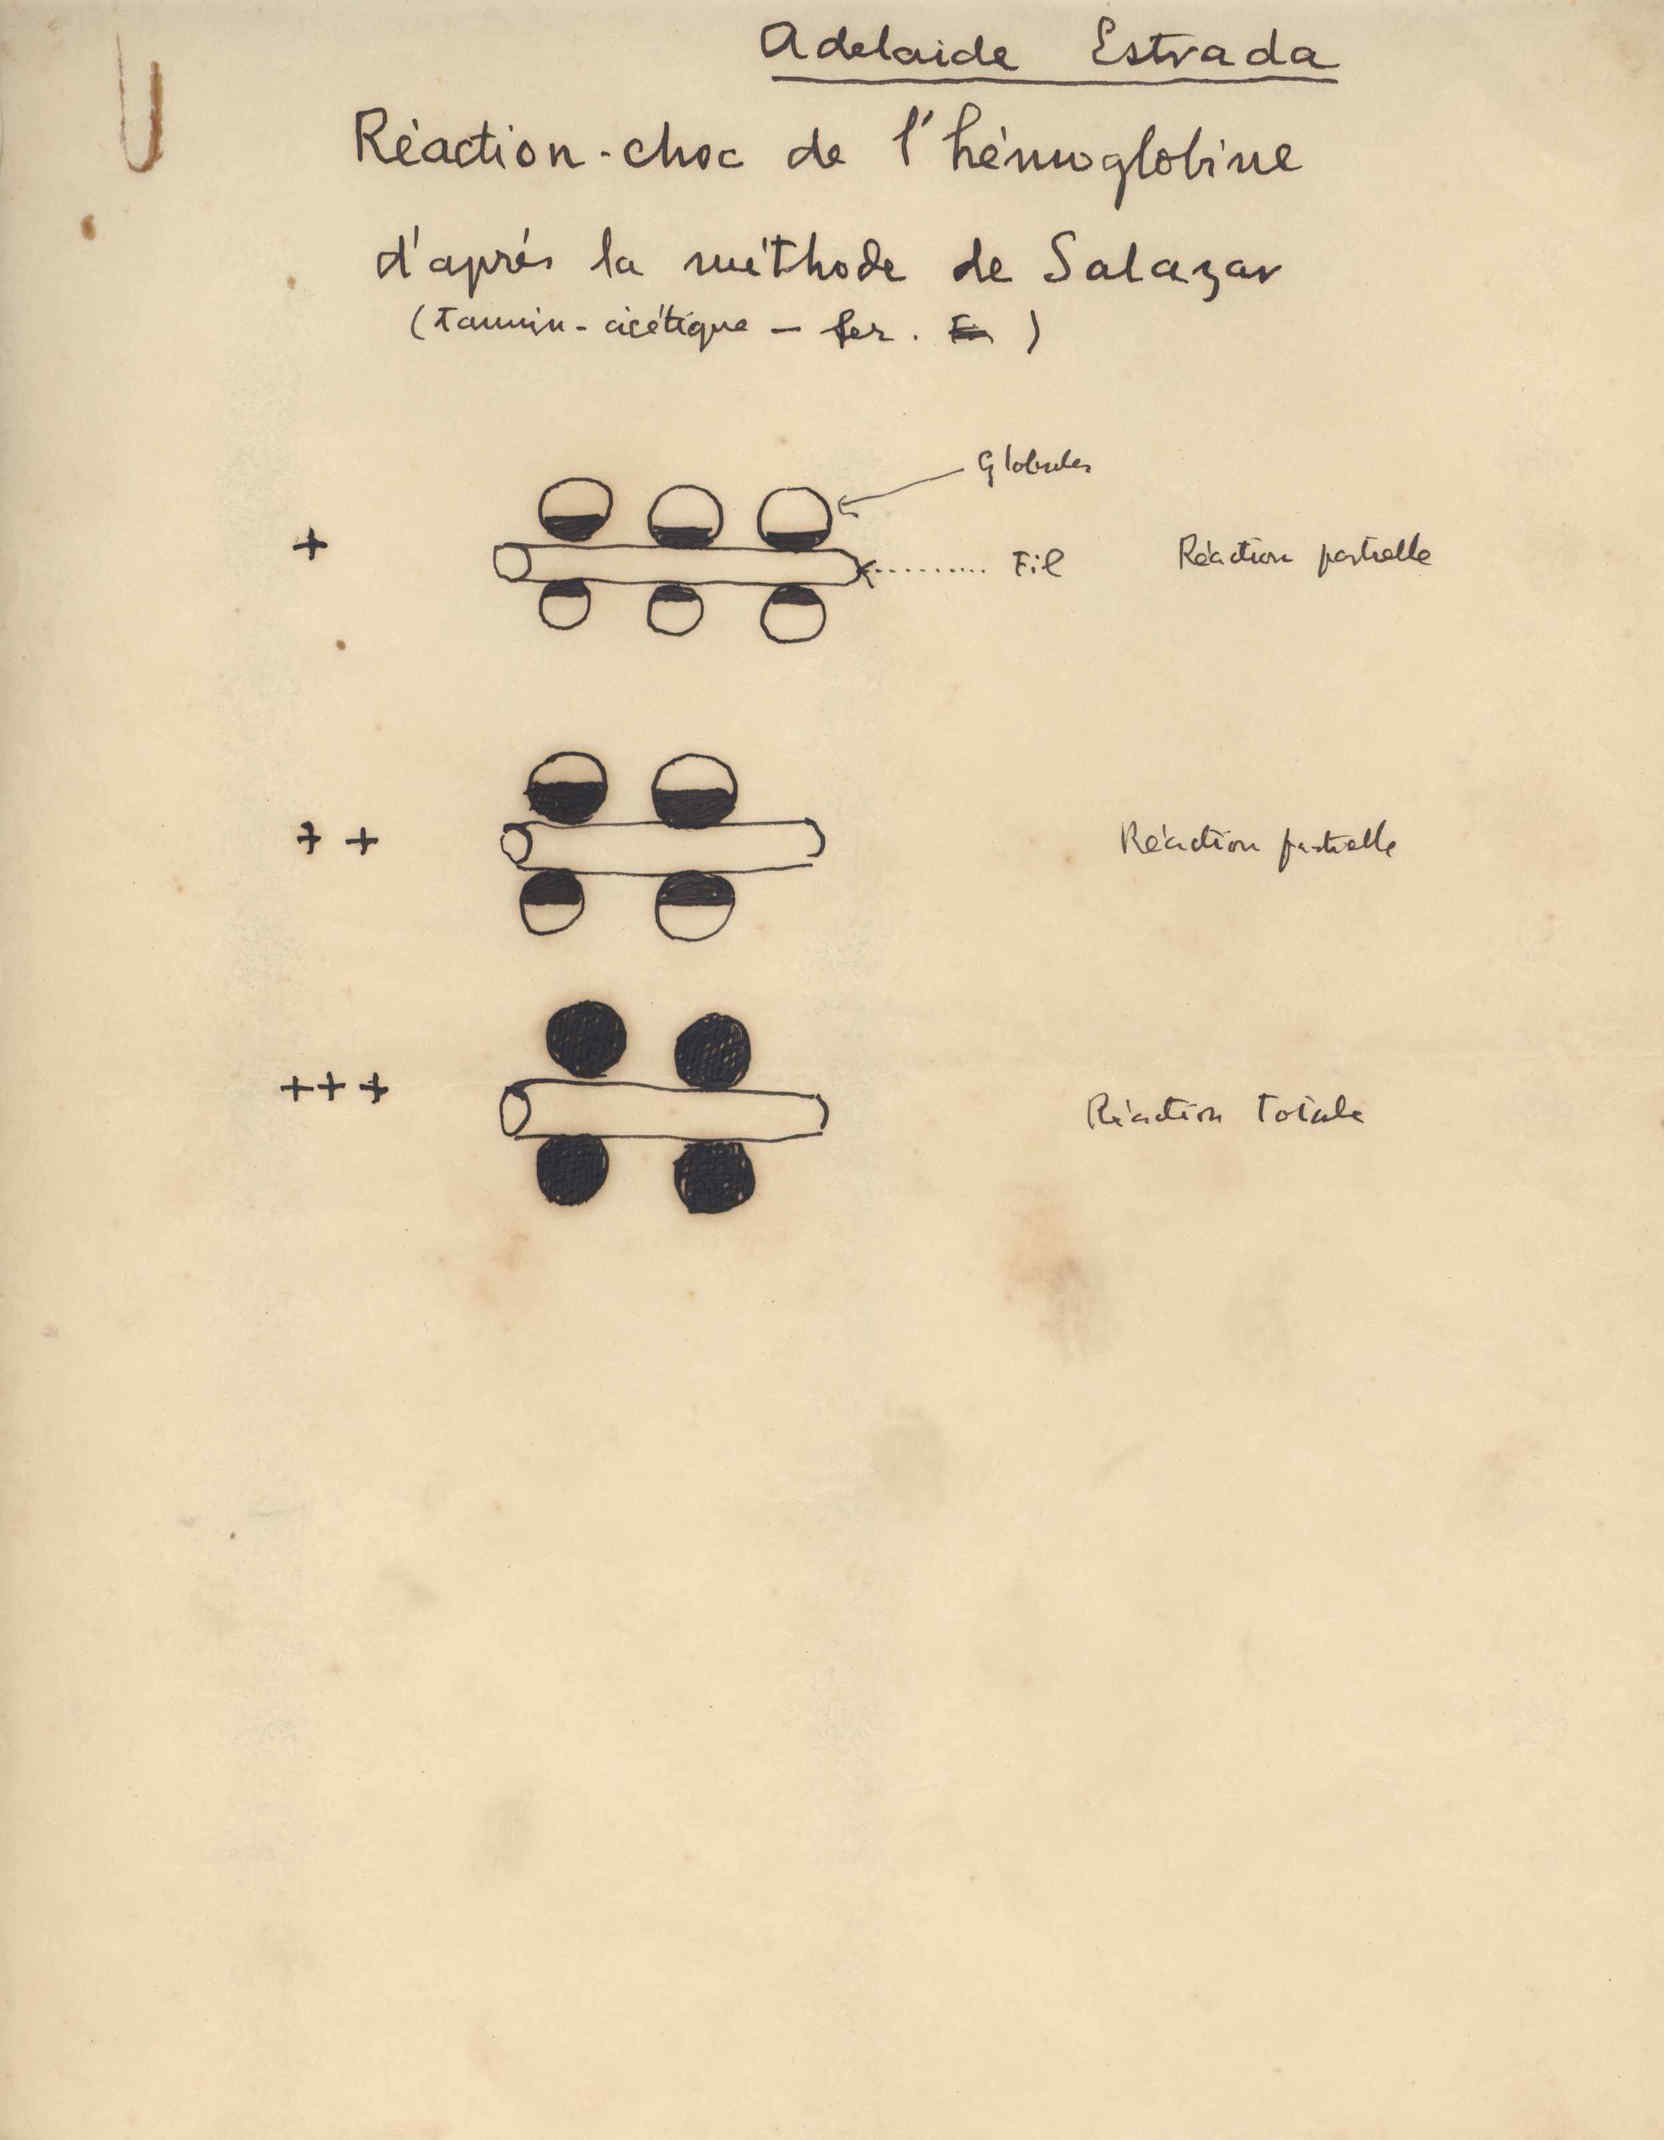 Adelaide Estrada
Réaction-choc de l'hémoglobine
d'après la méthode de Salazar
(Tannin-acétique - fer. )
Globules
+ Fil Réaction partielle
+ + Réaction partielle
+++ Réaction Totale